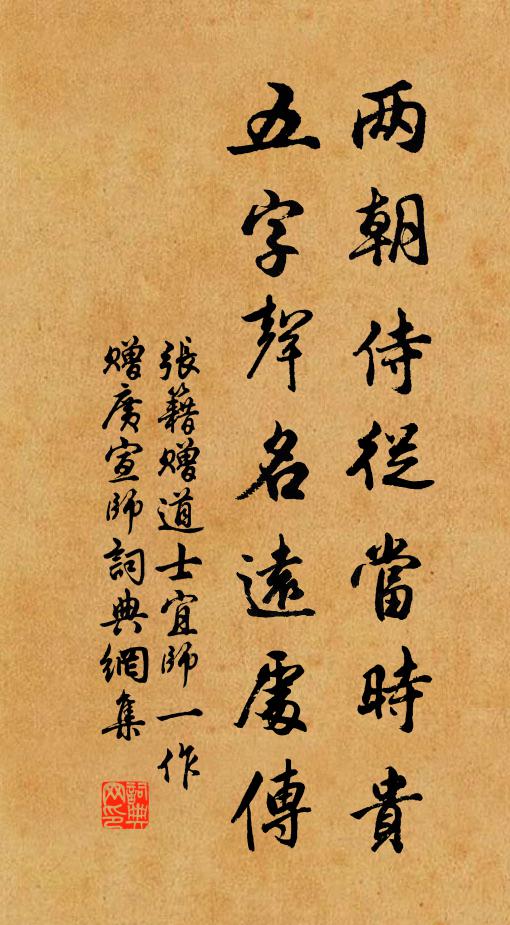 两朝侍從當時貴
五字聲名遠處傳
張籍贈道士宜師一作
贈廣宣師詞典網集
詞典网印